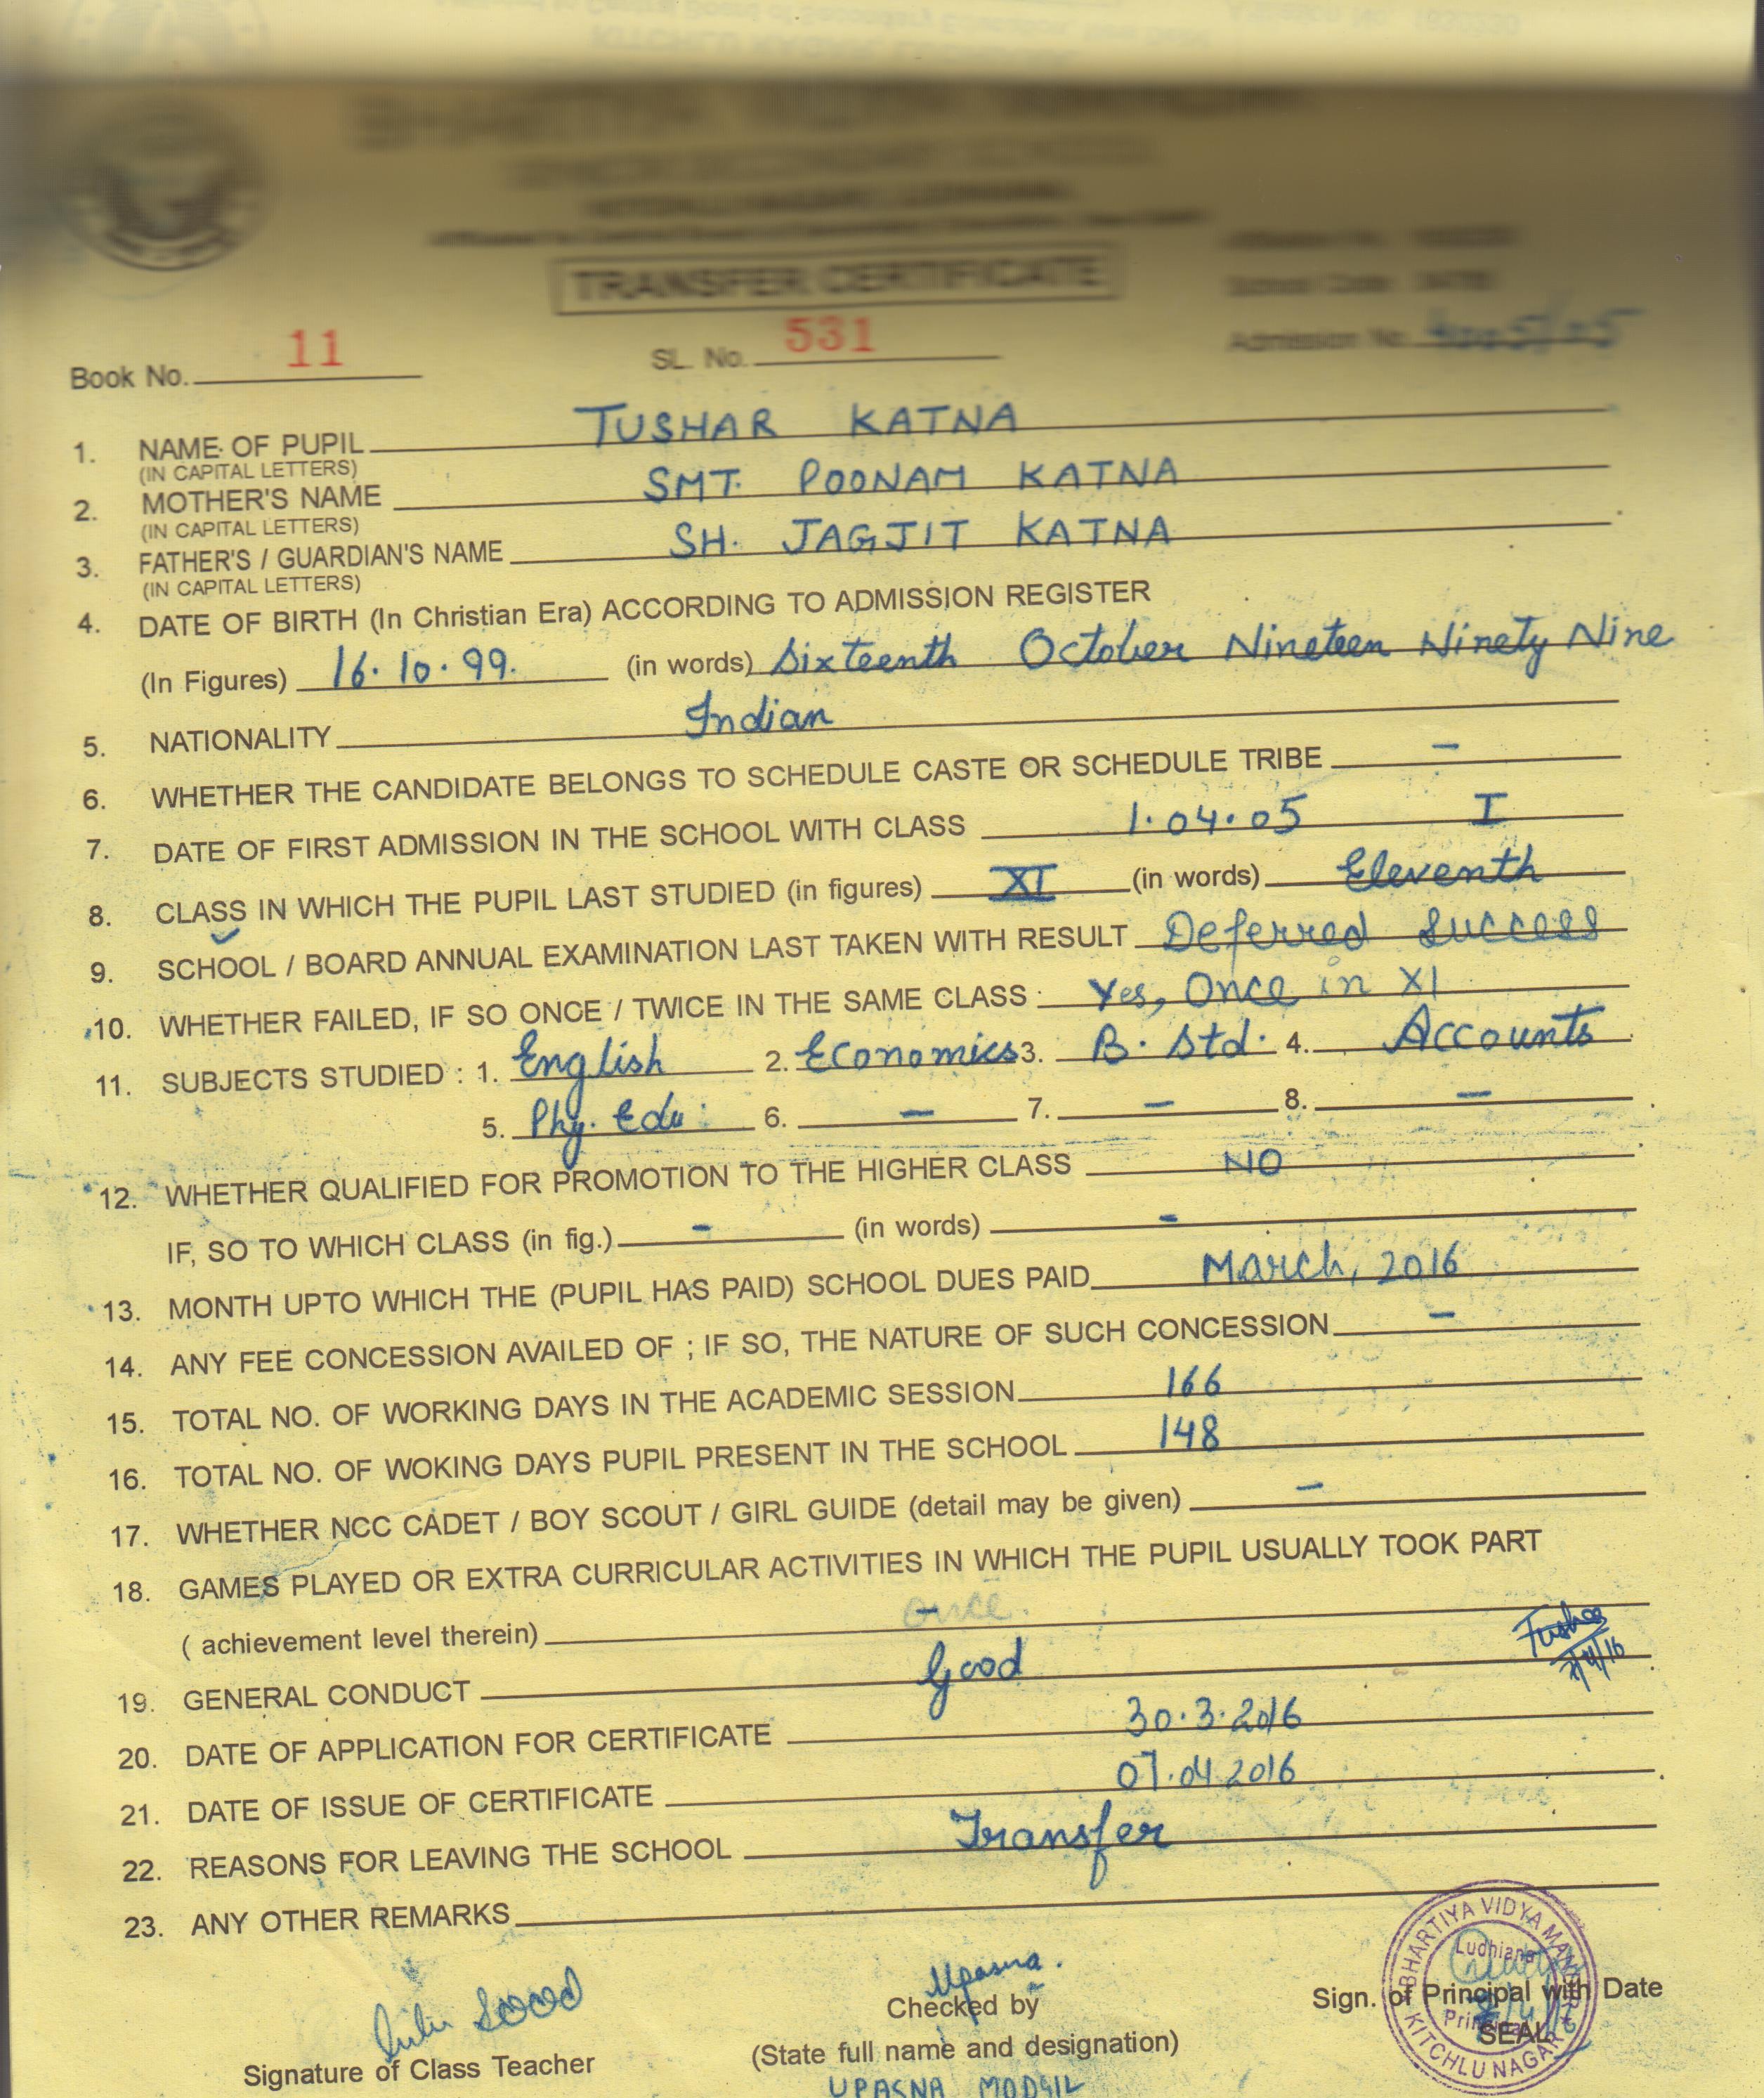 TRANSFER CERTIFICATE
Book No. 11 SL. No. 531 Admission No.
1. NAME OF PUPIL TUSHAR KATNA
(IN CAPITAL LETTERS)
2. MOTHER'S NAME SMT. POONAM KATNA
(IN CAPITAL LETTERS)
3. FATHER'S / GUARDIAN'S NAME SH. JAGJIT KATNA
(IN CAPITAL LETTERS)
4. DATE OF BIRTH (In Christian Era) ACCORDING TO ADMISSION REGISTER
(In Figures) 16.10.99. (in words) Sixteenth October Nineteen Ninety Nine
5. NATIONALITY Indian
6. WHETHER THE CANDIDATE BELONGS TO SCHEDULE CASTE OR SCHEDULE TRIBE -
7. DATE OF FIRST ADMISSION IN THE SCHOOL WITH CLASS 1.04.05 I
8. CLASS IN WHICH THE PUPIL LAST STUDIED (in figures) XI (in words) Eleventh
9. SCHOOL / BOARD ANNUAL EXAMINATION LAST TAKEN WITH RESULT Deferred Success
10. WHETHER FAILED, IF SO ONCE / TWICE IN THE SAME CLASS : Yes, Once in XI
11. SUBJECTS STUDIED : 1. English 2. Economics 3. B. Std. 4. Accounts
5. Phy. Edu. 6. - 7. - 8. -
12. WHETHER QUALIFIED FOR PROMOTION TO THE HIGHER CLASS NO
IF, SO TO WHICH CLASS (in fig.) - (in words) -
13. MONTH UPTO WHICH THE (PUPIL HAS PAID) SCHOOL DUES PAID March, 2016
14. ANY FEE CONCESSION AVAILED OF ; IF SO, THE NATURE OF SUCH CONCESSION -
15. TOTAL NO. OF WORKING DAYS IN THE ACADEMIC SESSION 166
16. TOTAL NO. OF WOKING DAYS PUPIL PRESENT IN THE SCHOOL 148
17. WHETHER NCC CADET / BOY SCOUT / GIRL GUIDE (detail may be given) -
18. GAMES PLAYED OR EXTRA CURRICULAR ACTIVITIES IN WHICH THE PUPIL USUALLY TOOK PART
( achievement level therein) - once
19. GENERAL CONDUCT Good
20. DATE OF APPLICATION FOR CERTIFICATE 30.3.2016
21. DATE OF ISSUE OF CERTIFICATE 07.04.2016
22. REASONS FOR LEAVING THE SCHOOL Transfer
23. ANY OTHER REMARKS
Sood Upasna.
Signature of Class Teacher Checked by Sign. of Principal with Date
(State full name and designation) SEAL
UPASNA MODGIL
BHARTIYA VIDYA MANDIR KITCHLU NAGAR
Ludhiana
Principal